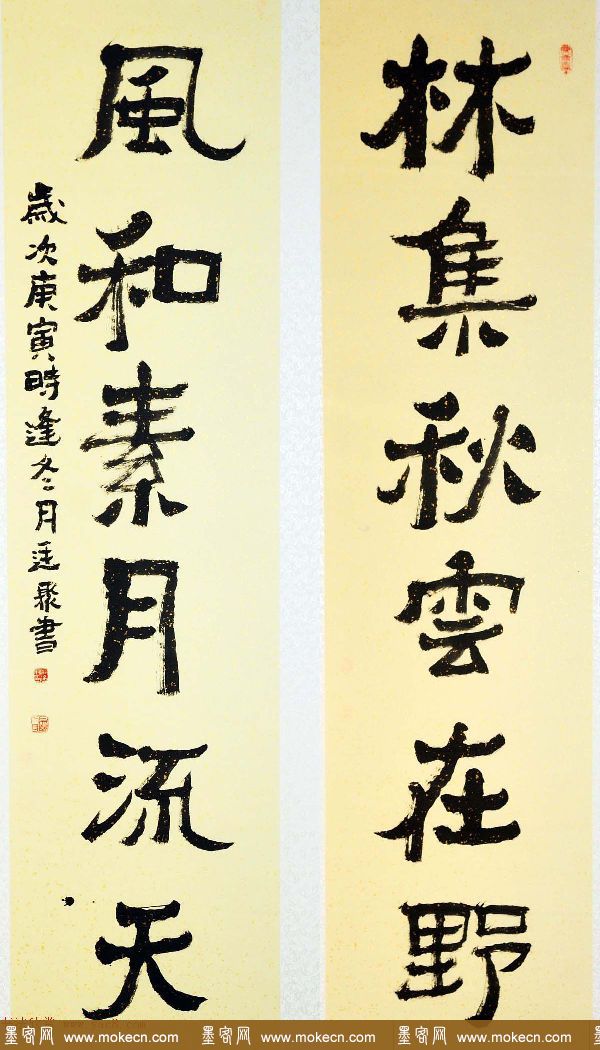 林集秋雲在野
風和素月流天
歲次庚寅時逢冬月廷聚書
墨客网 www.mokecn.com 墨客网 www.mokecn.com 墨客网 www.mokecn.com